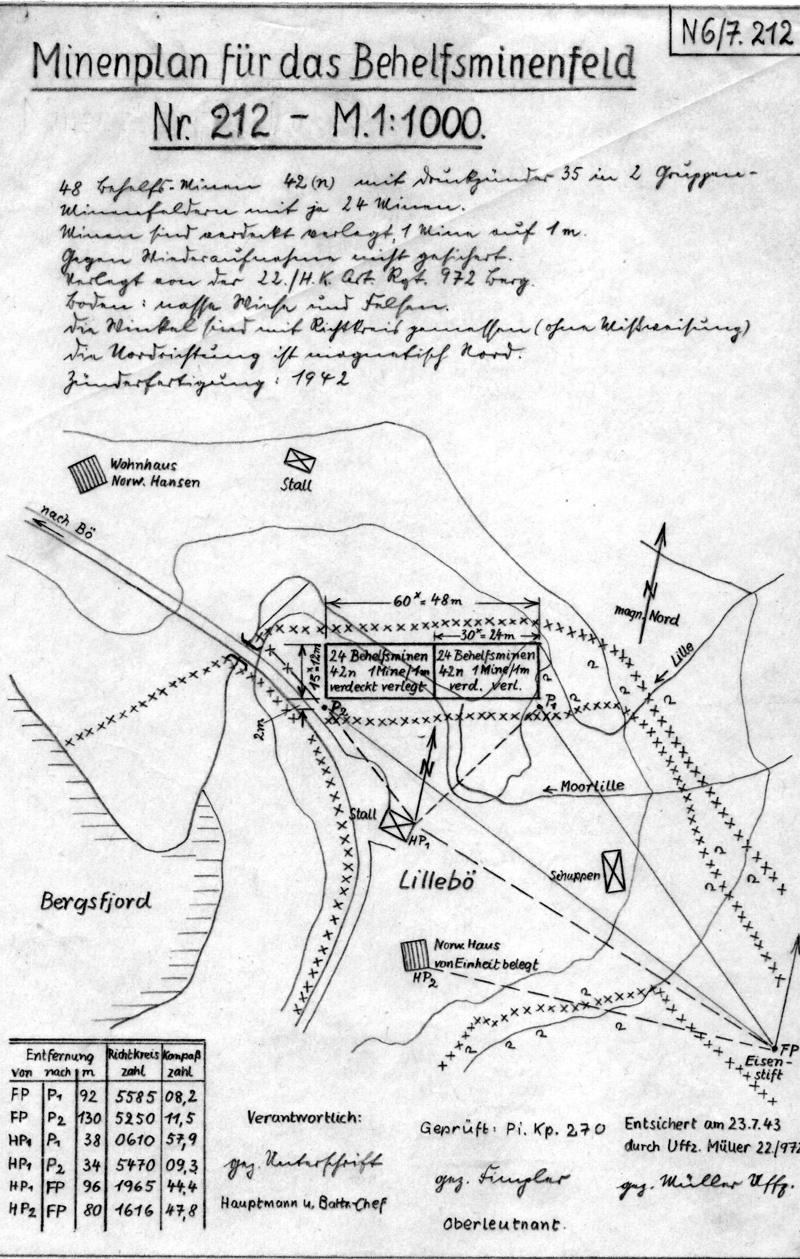 N6/7. 212
Minenplan für das Behelfsminenfeld
Nr. 212 - M. 1:1000.
48 Behelfs-Minen 42 (n) mit Druckzünder 35 in 2 Gruppen-
Minenfeldern mit je 24 Minen.
Minen sind verdeckt verlegt, 1 Mine auf 1 m.
Gegen Wiederaufnahme nicht gesichert.
Verlegt von der 22./H.K. Art. Rgt. 972 Berg.
Boden: nasse Wiese und Felsen.
Die Winkel sind mit Richtkreis gemessen (ohne Mißweisung)
Die Nordrichtung ist magnetisch Nord.
Zünderfertigung: 1942
Wohnhaus
Norw. Hansen
Stall
nach Bö
60ˣ = 48 m
30ˣ = 24 m
15ˣ = 12 m
24 Behelfsminen
42n 1 Mine/1m
verdeckt verlegt
24 Behelfsminen
42n 1 Mine/1m
verd. verl.
N
magn. Nord
Lille
P2
P1
2m
N
Moorlille
Stall
HP1
Lillebö
Schuppen
Bergsfjord
Norw. Haus
von Einheit belegt
HP2
FP
Eisen-
stift
Entfernung Richtkreis Kompaß
von nach m zahl zahl
FP P1 92 5585 08,2
FP P2 130 5250 11,5
HP1 P1 38 0610 57,9
HP1 P2 34 5470 09,3
HP1 FP 96 1965 44,4
HP2 FP 80 1616 47,8
Verantwortlich:
gez. Unterschrift
Hauptmann u. Battr.-Chef
Geprüft: Pi. Kp. 270
gez.
Oberleutnant.
Entsichert am 23.7.43
durch Uffz. Müller 22/972
gez. Müller Uffz.